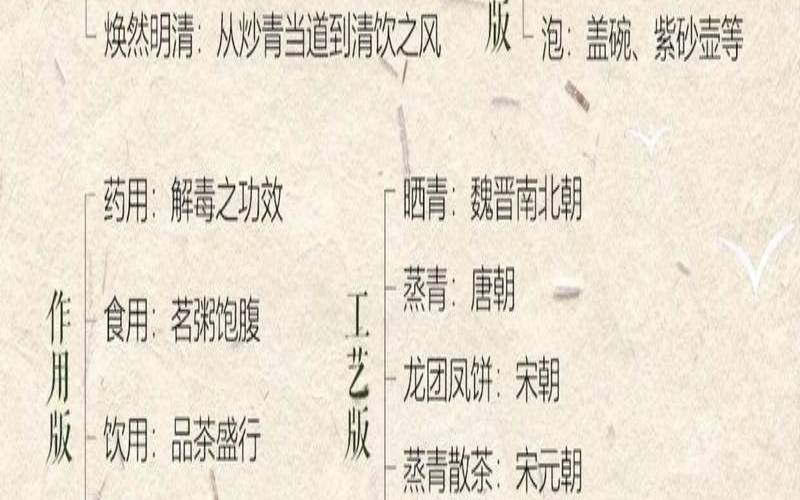 焕然明清：从炒青当道到清饮之风
版
泡：盖碗、紫砂壶等
作用版
药用：解毒之功效
食用：茗粥饱腹
饮用：品茶盛行
工艺版
晒青：魏晋南北朝
蒸青：唐朝
龙团凤饼：宋朝
蒸青散茶：宋元朝